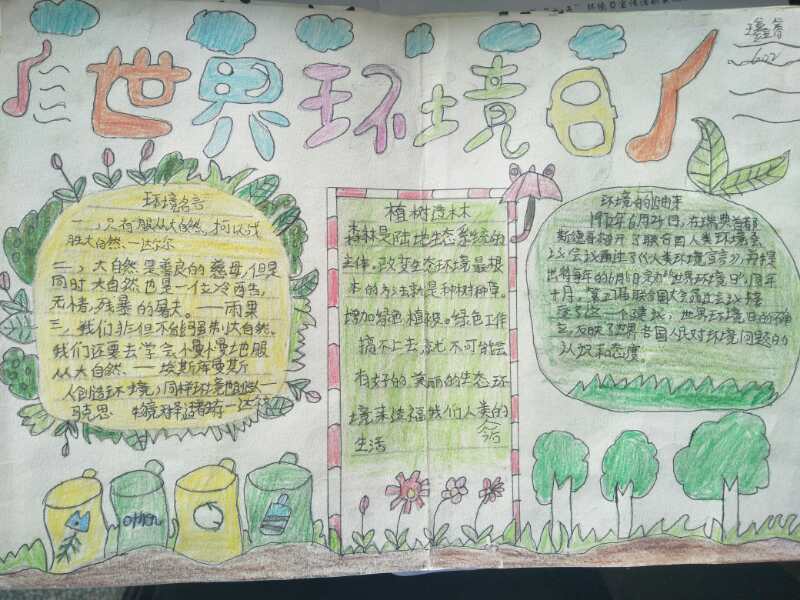 世界环境日
602
环境名言
一、只有服从大自然,才可以战
胜大自然。—达尔文
二、大自然是善良的慈母,但是
同时大自然也是一位冷酷
无情,残暴的屠夫。——雨果
三、我们非但不能强制大自然,
我们还要去学会慢慢地服
从大自然。——埃斯库罗斯
人创造环境,同样环境
马克思
植树造林
森林是陆地生态系统的
主体。改变生态环境最根
本的方法就是种树种草。
增加绿色植被。绿色工作
搞不上去就不可能会
有好的、美丽的生态环
境来造福我们人类的
今后
生活
环境的由来
1972年6月 日,在瑞典首都
斯德哥 召开了联合国人类环境会
议会议通过了《人类环境宣言》,并提
出将每年的6月5日定为"世界环境日"。同年
十月,第 届联合国大会通过决议接
受了这一个建议。世界环境日的确
立,反映了世界各国人民对环境问题的
认识和态度
other